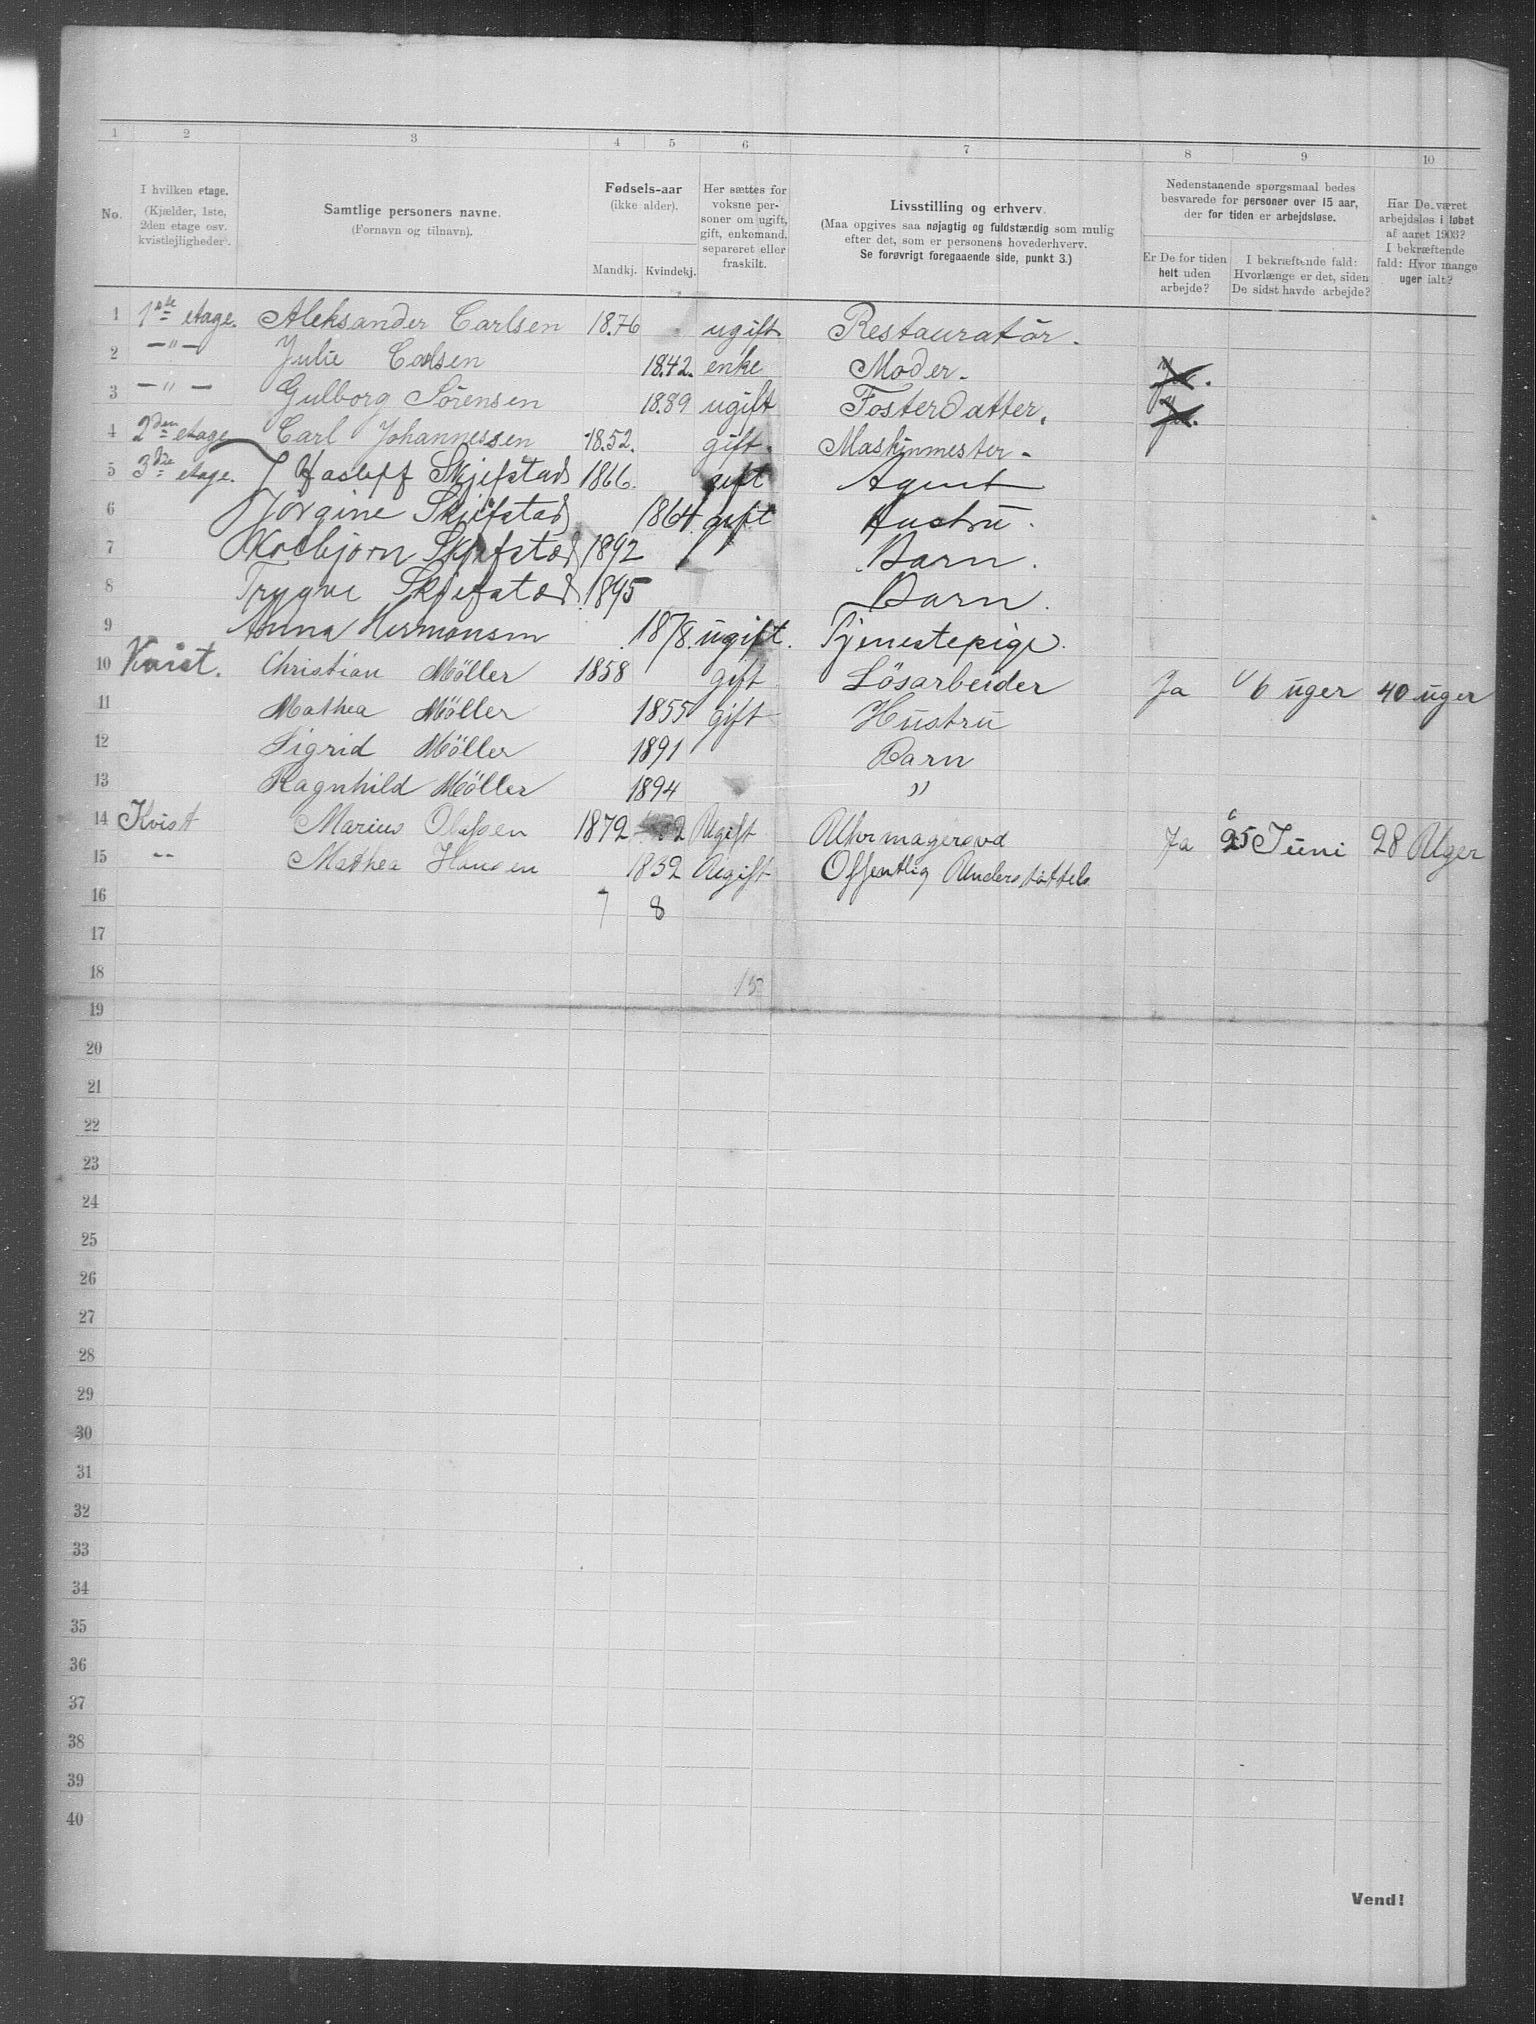 1 2 3 4 5 6 7 8 9 10
No.
I hvilken etage.
(Kjælder, 1ste,
2den etage osv.
kvistlejligheder).
Samtlige personers navne.
(Fornavn og tilnavn).
Fødsels-aar
(ikke alder).
Mandkj. Kvindekj.
Her sættes for
voksne per-
soner om ugift,
gift, enkemand,
separeret eller
fraskilt.
Livsstilling og erhverv.
(Maa opgives saa nøjagtig og fuldstændig som mulig
efter det, som er personens hovederhverv.
Se forøvrigt foregaaende side, punkt 3.)
Nedenstaaende spørgsmaal bedes
besvarede for personer over 15 aar,
der for tiden er arbejdsløse.
Er De for tiden
helt uden
arbejde?
I bekræftende fald:
Hvorlænge er det, siden
De sidst havde arbejde?
Har De været
arbejdsløs i løbet
af aaret 1903?
I bekræftende
fald: Hvor mange
uger ialt?
1 1ste etage. Aleksander Carlsen 1876 ugift Restauratör.
2 —"— Julie Carlsen 1842. enke Moder.
3 —"— Gulborg Sörensen 1889 ugift Fosterdatter.
4 2den etage Carl Johannessen 1852. gift. Maskinmester.
5 3die etage. J Skjefstad 1866. gift Agent
6 Jörgine Skjefstad 1864 gift Hustru.
7 Kolbjørn Skjefstad 1892 Barn.
8 Trygve Skjefstad 1895 Barn.
9 Anna Hermansen 1878. ugift. Tjenestepige.
10 Kvist. Christian Möller 1858 gift Lösarbeider Ja 6 uger 40 uger
11 Mathea Möller 1855 gift Hustru
12 Sigrid Möller 1891 Barn
13 Ragnhild Möller 1894 "
14 Kvist Marius Olafsen 1872 Ugift Uhrmagersvd Ja 25 Juni 28 Uger
15 -"- Mathea Hansen 1832 Ugift Offentlig Understöttels
16 7 8
17
18 15
19
20
21
22
23
24
25
26
27
28
29
30
31
32
33
34
35
36
37
38
39
40
Vend!